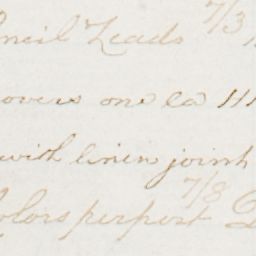 7/3
encil Leads
overs one ea 111
with linen joint
7/8
olors per post